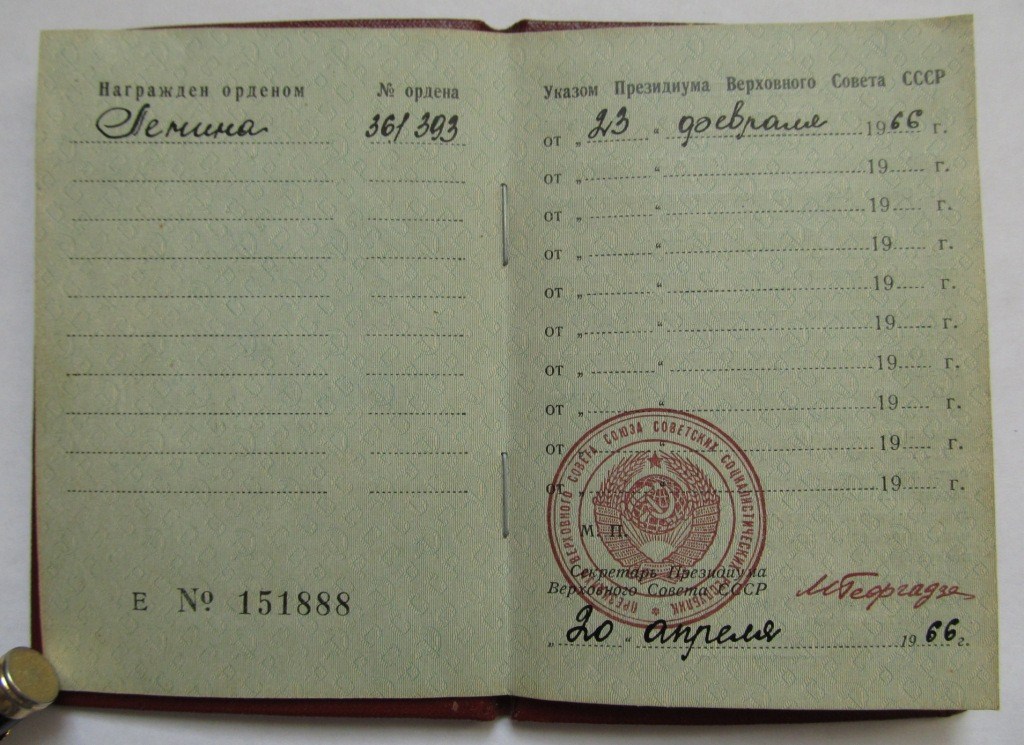 Награжден орденом № ордена
Ленина 361393
Е № 151888
Указом Президиума Верховного Совета СССР
от „ 23 “ февраля 1966 г.
от „ “ 19 г.
от „ “ 19 г.
от „ “ 19 г.
от „ “ 19 г.
от „ “ 19 г.
от „ “ 19 г.
от „ “ 19 г.
от „ “ 19 г.
от „ “ 19 г.
ПРЕЗИДИУМ ВЕРХОВНОГО СОВЕТА СОЮЗА СОВЕТСКИХ СОЦИАЛИСТИЧЕСКИХ РЕСПУБЛИК
М. П.
Секретарь Президиума
Верховного Совета СССР
М Георгадзе
„ 20 “ апреля 1966 г.